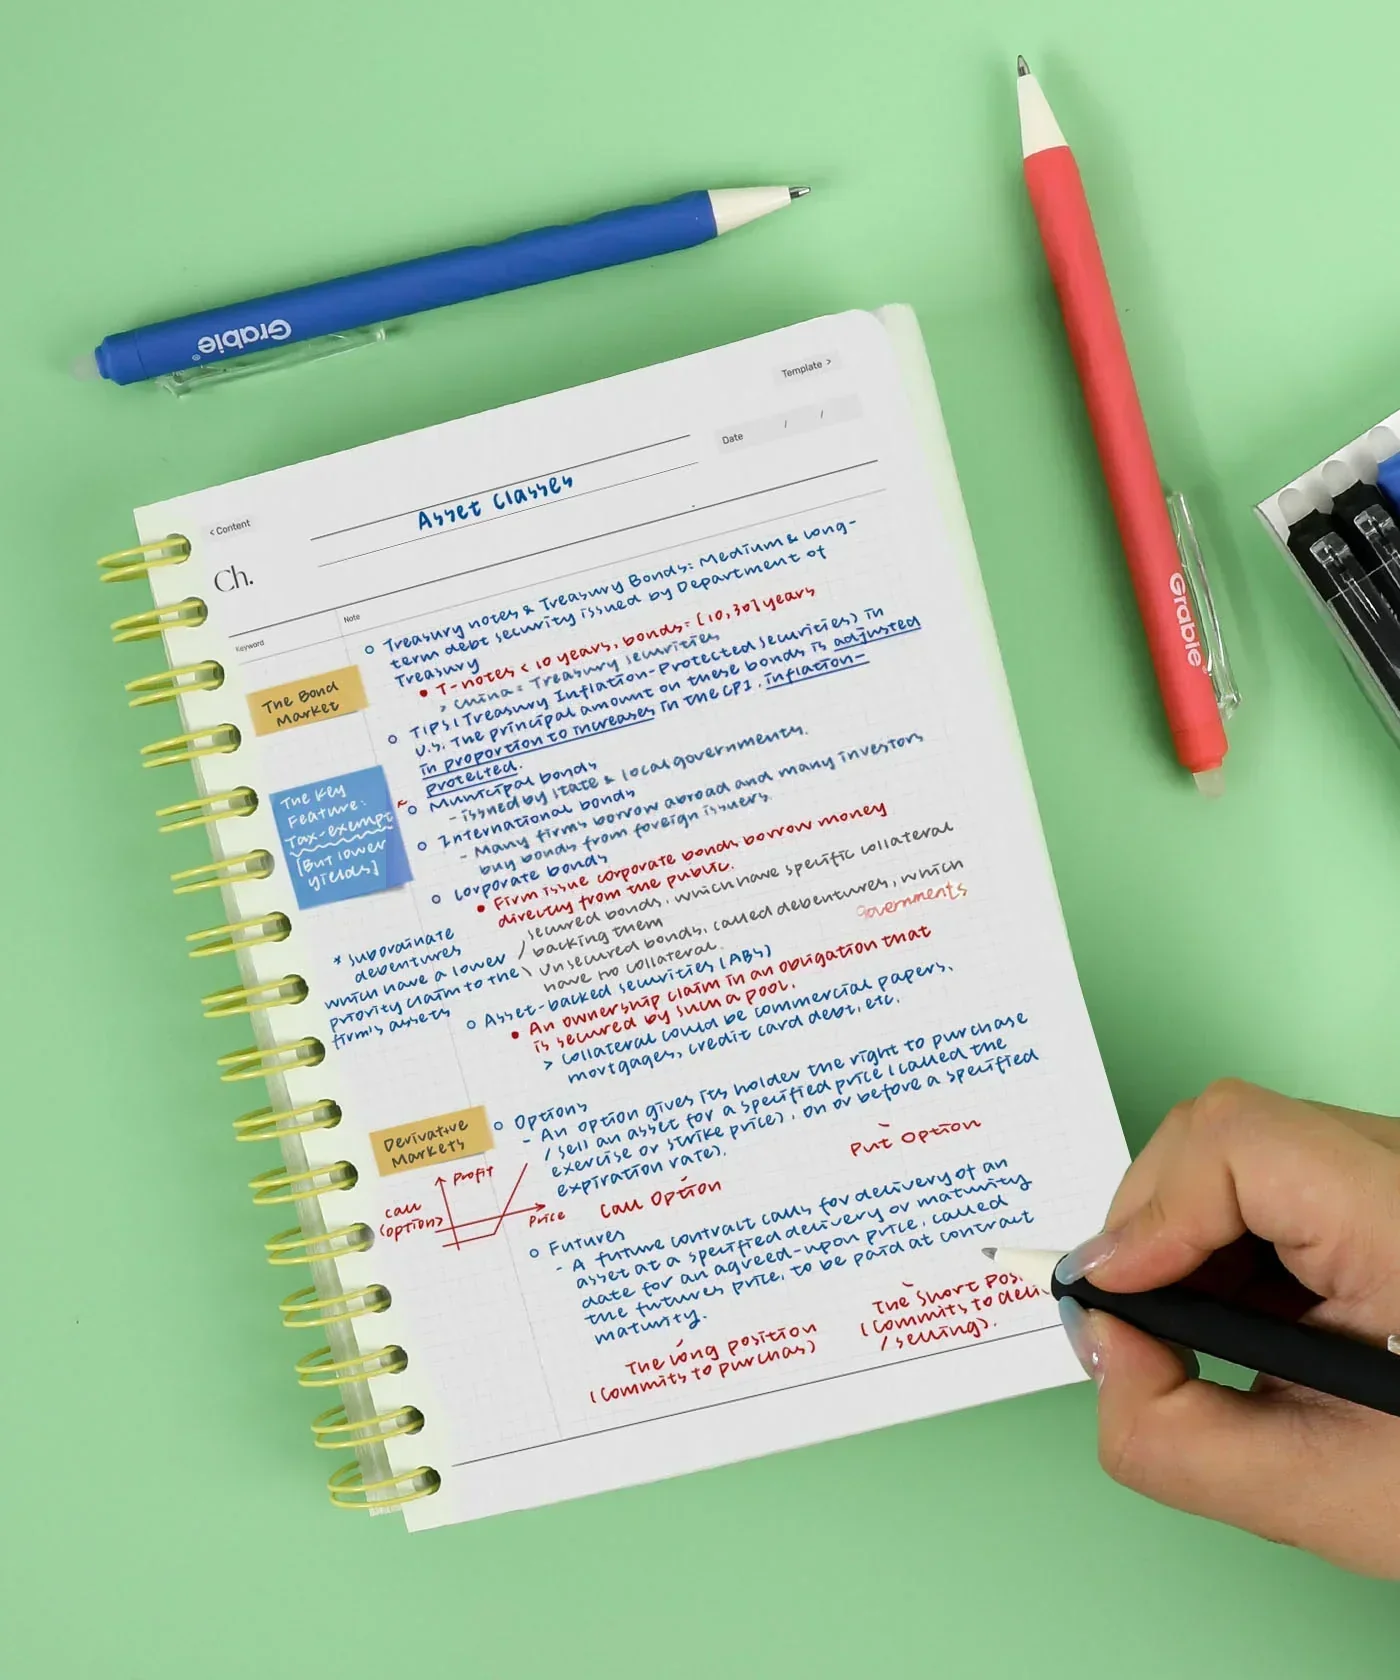 Grabie
Grabie
Template >
Date / /
< Content
Asset Classes
Ch.
Keyword
Note
The Bond
Market
Treasury notes & Treasury Bonds: Medium & long-
term debt security issued by Department of
Treasury
T-notes < 10 years, bonds: [10,30] years
> China: Treasury securities
TIPS (Treasury Inflation-Protected Securities) in
U.S. The principal amount on these bonds is adjusted
in proportion to increases in the CPI. inflation-
protected.
The Key
Feature:
Tax-exempt
[But lower
yields]
Municipal bonds
- issued by state & local governments.
International bonds
- Many firms borrow abroad and many investors
buy bonds from foreign issuers.
Corporate bonds
Firm issue corporate bonds borrow money
directly from the public.
secured bonds, which have specific collateral
backing them
Unsecured bonds, called debentures, which
have no collateral.
governments
* subordinate
debentures
which have a lower
priority claim to the
firm's assets
Asset-backed securities (ABS)
An ownership claim in an obligation that
is secured by such a pool.
> Collateral could be commercial papers,
mortgages, credit card debt, etc.
Derivative
Markets
Options
- An option gives its holder the right to purchase
/ sell an asset for a specified price (called the
exercise or strike price), on or before a specified
expiration rate).
Put Option
Call Option
profit
call
(option)
Price
Futures
- A future contract calls for delivery of an
asset at a specified delivery or maturity
date for an agreed-upon price, called
the futures price, to be paid at contract
maturity.
The short pos
(commits to deli
/ selling).
The long position
(commits to purchas)